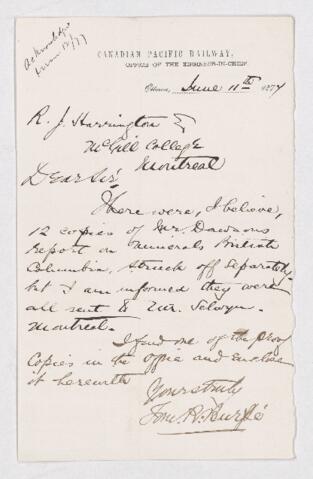 Acknowledged
June 12/77
CANADIAN PACIFIC RAILWAY.
OFFICE OF THE ENGINEER-IN-CHIEF
Ottawa, June 11th 1877
R. J. Harrington Esq
McGill College
Montreal
Dear Sir
There were, I believe,
12 copies of Mr. Dawsons
report on minerals British
Columbia, struck off separately
but I am informed they were
all sent to Mr. Selwyn.
Montreal.
I find one of the proof
Copies in the office and enclose
it herewith
Yours truly
Thos. R. Burpé